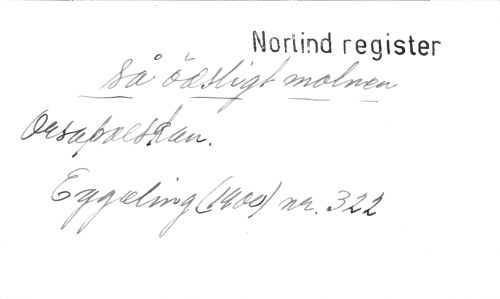 Norlind register
Så ödsligt molnen
Orsapolskan.
Eggeling (1900) nr. 322